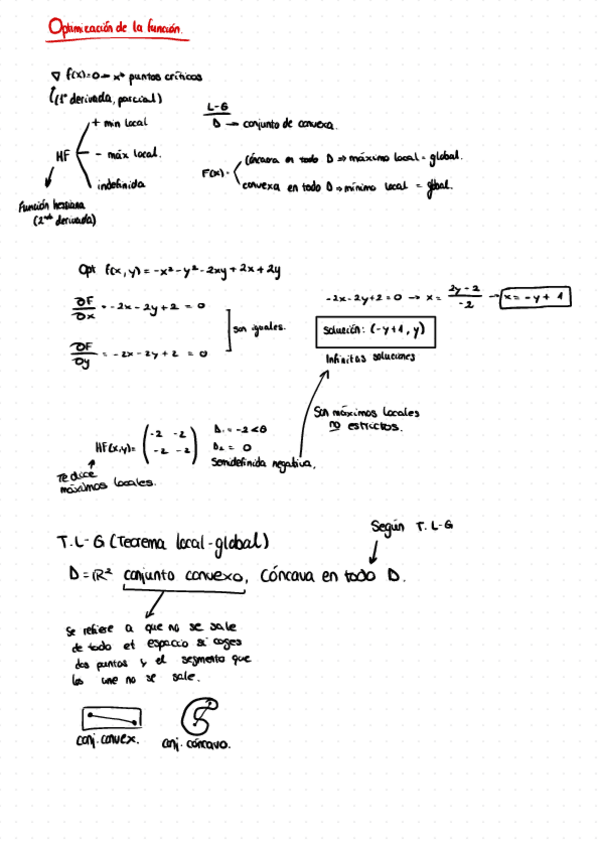 Optimización de la función.
∇ f(x)=0 → x* puntos críticos
(1ª derivada, parcial)
HF
+ min local
- máx local.
indefinida
Función hessiana
(2nda derivada)
L-G
D → conjunto de convexa.
F(x).
Cóncava en todo D ⇒ máximo local = global.
convexa en todo D ⇒ mínimo local = global.
Opt f(x,y) = -x² - y² - 2xy + 2x + 2y
∂F/∂x = -2x - 2y + 2 = 0
∂F/∂y = -2x - 2y + 2 = 0
son iguales.
-2x - 2y + 2 = 0 → x = (2y - 2)/-2 → x = -y + 1
Solución: (-y+1, y)
Infinitas soluciones
Son máximos locales
no estrictos.
HF(x,y) = (-2 -2
-2 -2)
D₁ = -2 < 0
D₂ = 0
Semidefinida negativa.
Te dice
máximos locales.
T.L-G (Teorema local-global)
Según T.L-G
D = ℝ² conjunto convexo, Cóncava en todo D.
Se refiere a que no se sale
de todo el espacio si coges
dos puntos y el segmento que
los une no se sale.
conj. convex.
conj. cóncavo.